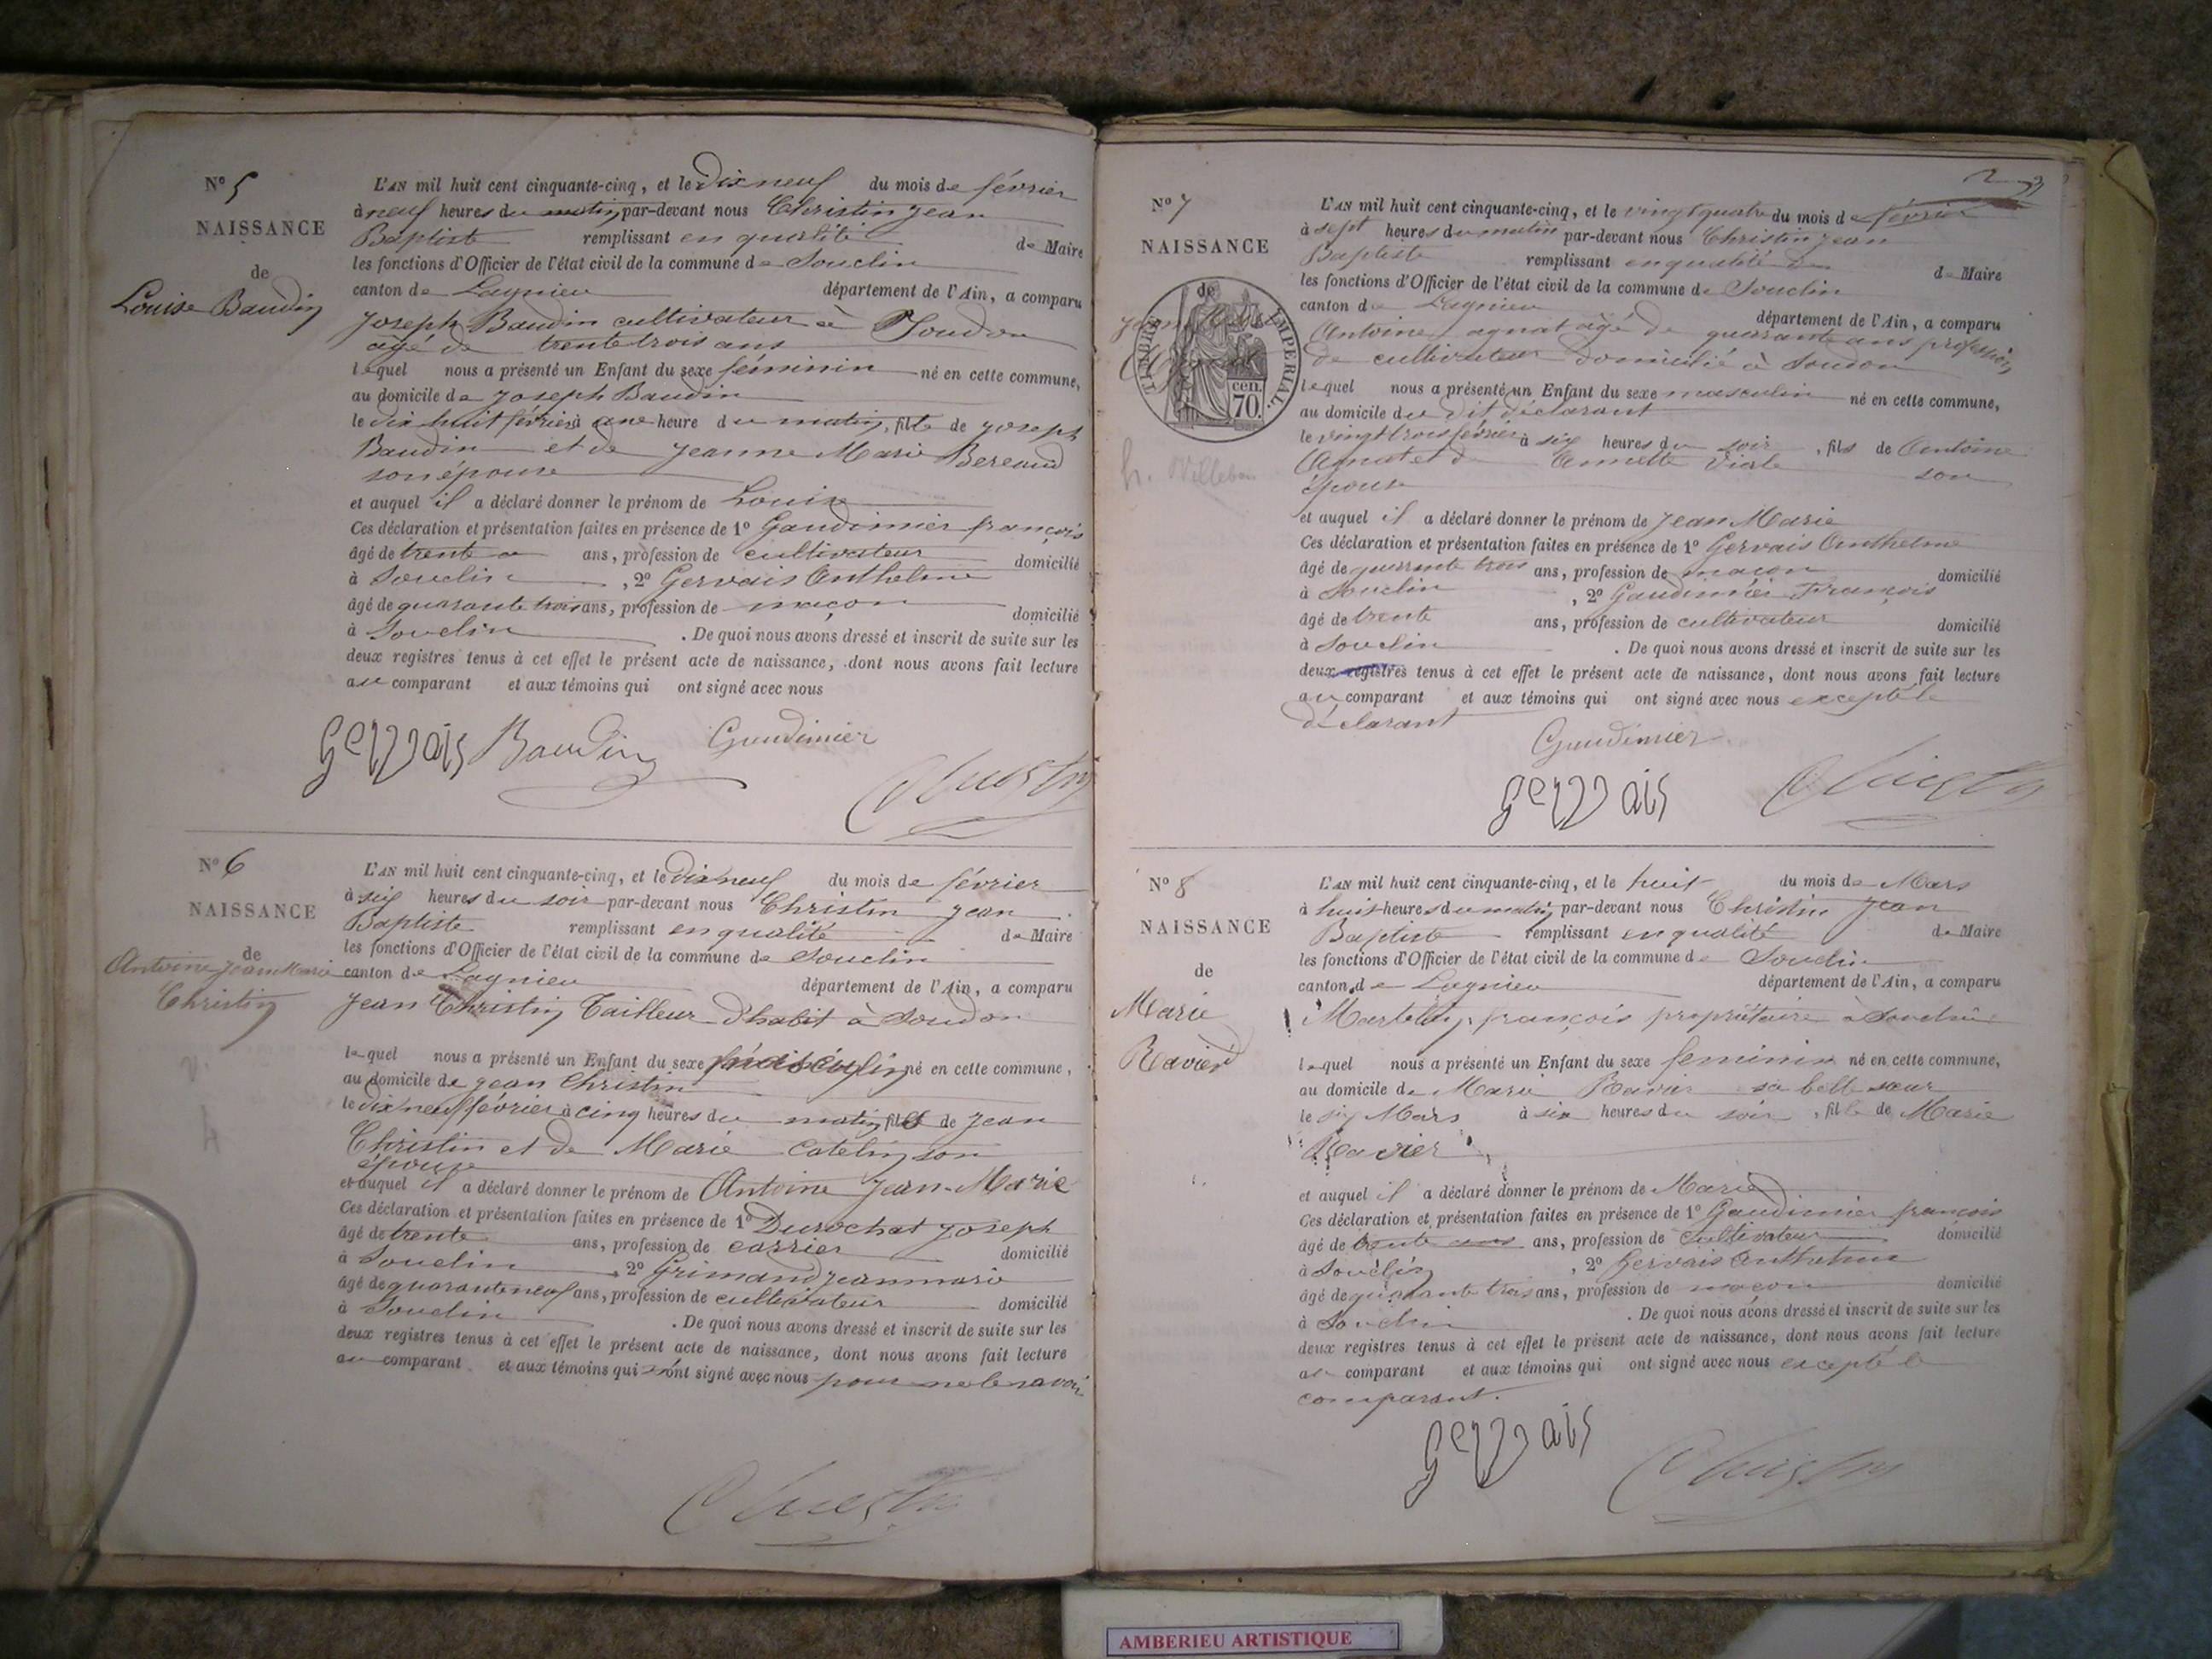 N° 5
NAISSANCE
de
Louise Baudin
L'AN mil huit cent cinquante-cinq, et le dix neuf du mois de février
à neuf heures du matin par-devant nous Christin jean
Baptiste remplissant en qualité de Maire
les fonctions d'Officier de l'état civil de la commune de Souclin
canton de Lagnieu département de l'Ain, a comparu
Joseph Baudin cultivateur à Soudon
agé de trente trois ans
lequel nous a présenté un Enfant du sexe féminin né en cette commune,
au domicile de Joseph Baudin
le dix huit février à une heure du matin, fille de joseph
Baudin et de Jeanne Marie Bereaud
son épouse
et auquel il a déclaré donner le prénom de Louise
Ces déclaration et présentation faites en présence de 1° Gaudimier françois
âgé de trente ans, profession de cultivateur domicilié
à Souclin, 2° Gervais Anthelme
âgé de quarante trois ans, profession de maçon domicilié
à Souclin. De quoi nous avons dressé et inscrit de suite sur les
deux registres tenus à cet effet le présent acte de naissance, dont nous avons fait lecture
au comparant et aux témoins qui ont signé avec nous
Gervais Baudin Gaudimier
Christin
N° 6
NAISSANCE
de
Antoine Jean Marie
Christin
L'AN mil huit cent cinquante-cinq, et le dix neuf du mois de février
à six heures du soir par-devant nous Christin Jean
Baptiste remplissant en qualité de Maire
les fonctions d'Officier de l'état civil de la commune de Souclin
canton de Lagnieu département de l'Ain, a comparu
Jean Christin Tailleur d'habit à Soudon
lequel nous a présenté un Enfant du sexe masculin né en cette commune,
au domicile de jean Christin
le dix neuf février à cinq heures du matin, fils de Jean
Christin et de Marie Catelin son
épouse
et auquel il a déclaré donner le prénom de Antoine Jean-Marie
Ces déclaration et présentation faites en présence de 1° Durochat Joseph
âgé de trente ans, profession de carrier domicilié
à Souclin, 2° Grimand jean marie
âgé de quarante neuf ans, profession de cultivateur domicilié
à Souclin. De quoi nous avons dressé et inscrit de suite sur les
deux registres tenus à cet effet le présent acte de naissance, dont nous avons fait lecture
au comparant et aux témoins qui n'ont signé avec nous pour ne le savoir
Christin
N° 7
NAISSANCE
de
TIMBRE IMPERIAL.
cen.
70.
h. Villebois
L'AN mil huit cent cinquante-cinq, et le vingt quatre du mois de février
à sept heures du matin par-devant nous Christin Jean
Baptiste remplissant en qualité de de Maire
les fonctions d'Officier de l'état civil de la commune de Souclin
canton de Lagnieu département de l'Ain, a comparu
Antoine agnat âgé de quarante ans profession
de cultivateur domicilié à Soudon
lequel nous a présenté un Enfant du sexe masculin né en cette commune,
au domicile du dit déclarant
le vingt trois février à six heures du soir, fils de Antoine
Agnat et de Annette Viale son
épouse
et auquel il a déclaré donner le prénom de Jean Marie
Ces déclaration et présentation faites en présence de 1° Gervais Anthelme
âgé de quarante trois ans, profession de maçon domicilié
à Souclin, 2° Gaudimier François
âgé de trente ans, profession de cultivateur domicilié
à Souclin. De quoi nous avons dressé et inscrit de suite sur les
deux registres tenus à cet effet le présent acte de naissance, dont nous avons fait lecture
au comparant et aux témoins qui ont signé avec nous excepté le
déclarant
Gaudimier
Gervais Christin
N° 8
NAISSANCE
de
Marie
Ravier
L'AN mil huit cent cinquante-cinq, et le huit du mois de Mars
à huit heures du matin par-devant nous Christin Jean
Baptiste remplissant en qualité de Maire
les fonctions d'Officier de l'état civil de la commune de Souclin
canton de Lagnieu département de l'Ain, a comparu
françois propriétaire à Souclin
lequel nous a présenté un Enfant du sexe feminin né en cette commune,
au domicile de Marie Ravier sa belle sœur
le six Mars à six heures du soir, fille de Marie
Ravier
et auquel il a déclaré donner le prénom de Marie
Ces déclaration et présentation faites en présence de 1° Gaudimier françois
âgé de trente ans ans, profession de Cultivateur domicilié
à Souclin, 2° Gervais Anthelme
âgé de quarante trois ans, profession de maçon domicilié
à Souclin. De quoi nous avons dressé et inscrit de suite sur les
deux registres tenus à cet effet le présent acte de naissance, dont nous avons fait lecture
au comparant et aux témoins qui ont signé avec nous excepté le
comparant.
Gervais
Christin
AMBERIEU ARTISTIQUE